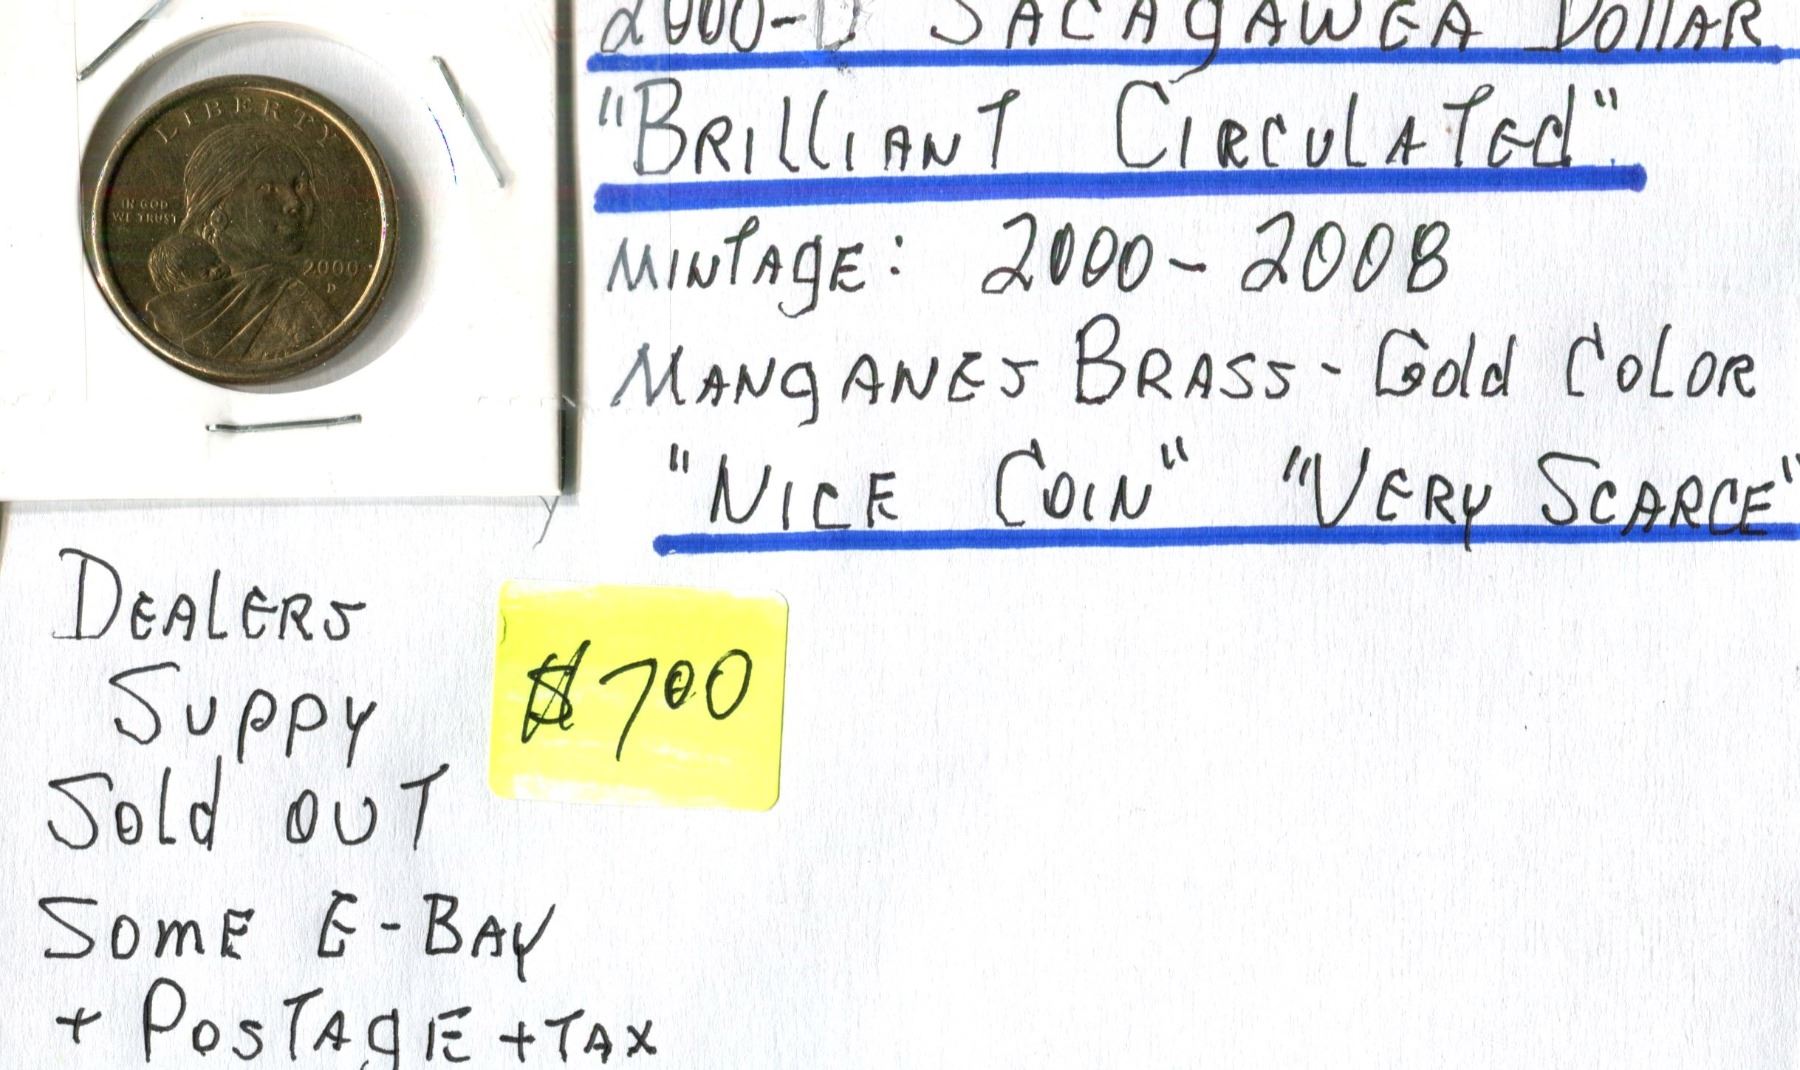 LIBERTY
IN GOD
WE TRUST
2000
D
2000-D SACAGAWEA DOLLAR
"BRILLIANT CIRCULATED"
MINTAGE: 2000-2008
MANGANES BRASS - GOLD COLOR
"NICE COIN" "VERY SCARCE"
DEALERS
SUPPY
SOLD OUT
$7.00
SOME E-BAY
+ POSTAGE + TAX